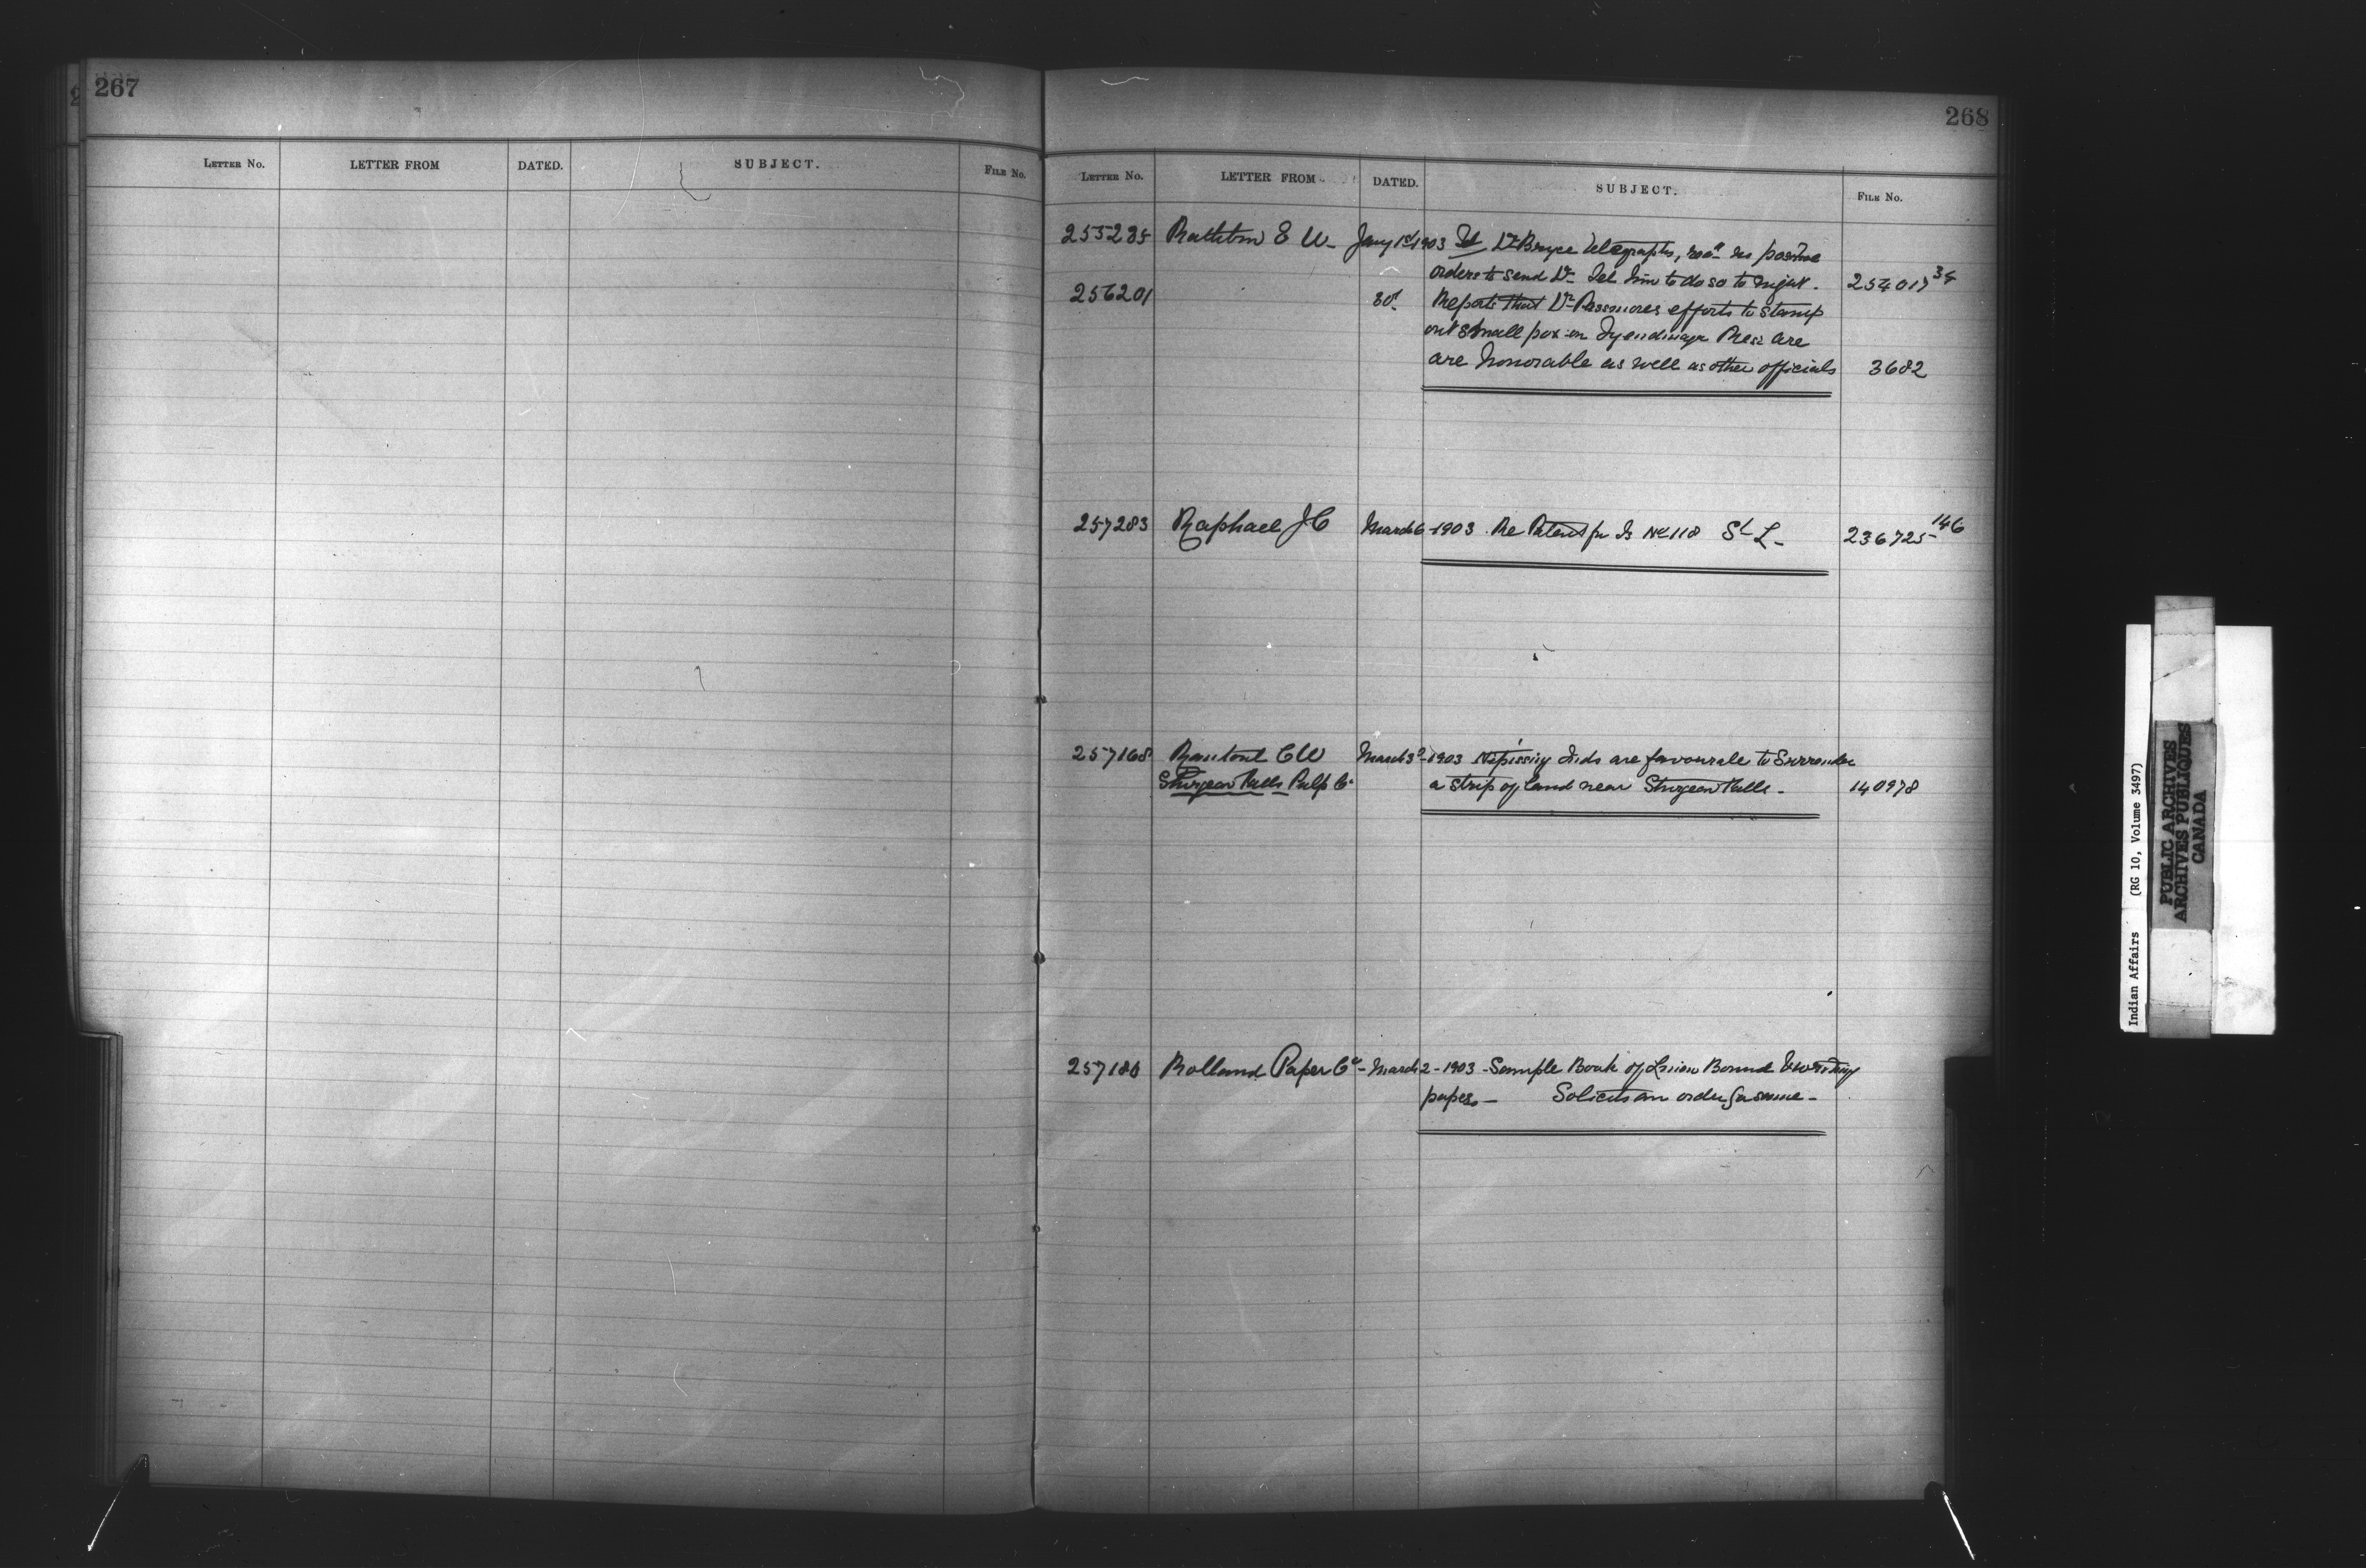 267
LETTER No. LETTER FROM DATED. SUBJECT. FILE No.
268
LETTER No. LETTER FROM DATED. SUBJECT. FILE No.
255285 Rathbun E W - Jany 1st 1903 Tel Dr Bryce telegraphs, no positive
orders to send Dr. Tel him to do so to night. 254017 34
256201 30 Reports that Dr Passmores efforts to stamp
out small pox on Tyendinaga Rese are
are honorable as well as other officials 3682
257283 Raphael J C March 6-1903. Re Patent for Is No 118 St L - 236725-146
257168 C W March 3-1903 Nipissing Inds are favourale to Surrender
Sturgeon Falls Pulp Co a strip of land near Sturgeon Falls - 140978
257180 Rolland Paper Co - March 2-1903 - Sample Book of Linen Bound & writing
papers - Solicits an order for same -
Indian Affairs (RG 10, Volume 3497)
PUBLIC ARCHIVES
ARCHIVES PUBLIQUES
CANADA